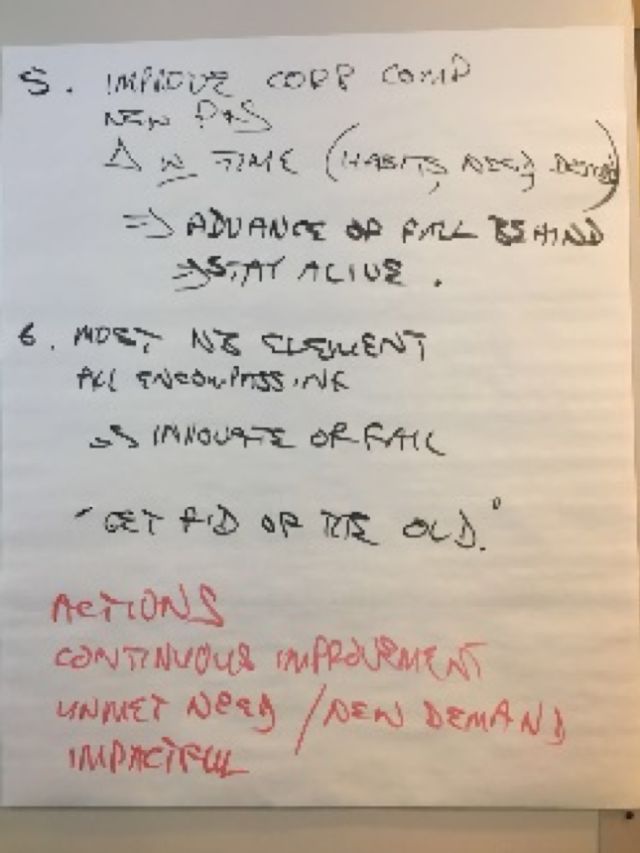 5. IMPROVE CORP COMP
NEW P&S
Δ IN TIME (HABITS, NEED, DESIRE)
⇒ ADVANCE OR FALL BEHIND
⇒ STAY ALIVE.
6. MOST NB ELEMENT
ALL ENCOMPASSING
⇒ INNOVATE OR FAIL
"GET RID OF THE OLD."
ACTIONS
CONTINUOUS IMPROVEMENT
UNMET NEED / NEW DEMAND
IMPACTFUL